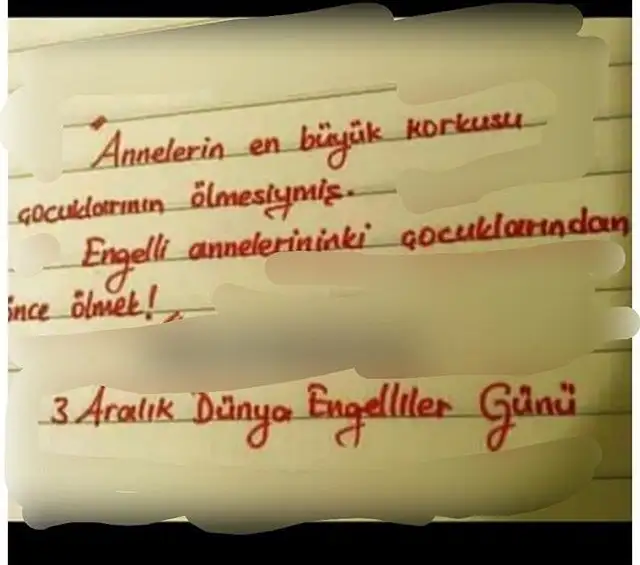 Annelerin en büyük korkusu
çocuklarının ölmesiymiş.
Engelli annelerininki çocuklarından
önce ölmek!
3 Aralık Dünya Engelliler Günü